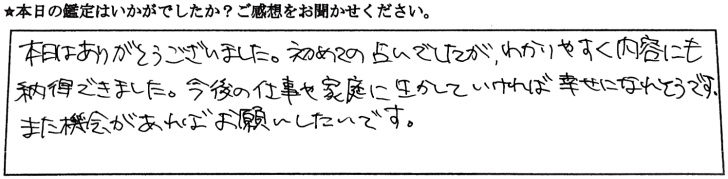 ★本日の鑑定はいかがでしたか？ご感想をお聞かせください。
本日はありがとうございました。初めての占いでしたが、わかりやすく内容にも
納得できました。今後の仕事や家庭に生かしていければ幸せになれそうです。
また機会があればお願いしたいです。